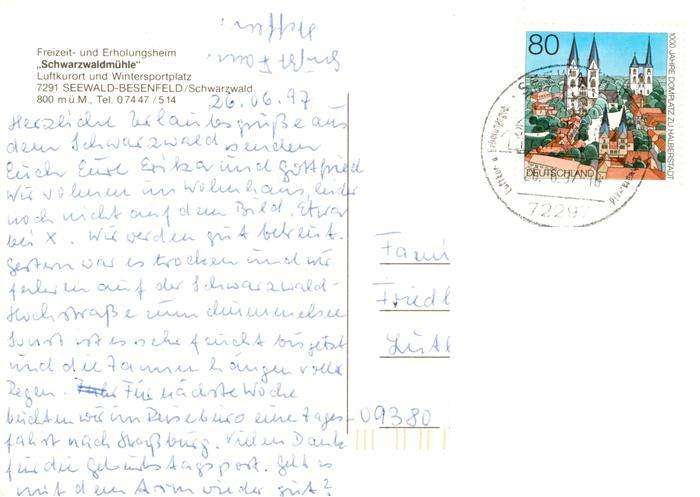 Freizeit- und Erholungsheim
„Schwarzwaldmühle"
Luftkurort und Wintersportplatz
7291 SEEWALD-BESENFELD/Schwarzwald
800 m ü.M., Tel. 07447/514
26.06.97
Herzliche Urlaubsgrüße aus
dem Schwarzwald senden
Euch Eure Erika und Gottfried
Wir wohnen im Wohnhaus, leider
noch nicht auf dem Bild. Etwa
bei X. Wir werden gut betreut.
Gestern war es trocken und wir
fuhren auf der Schwarzwald-
Hochstraße zum Mummelsee
Sonst ist es sehr feucht bis jetzt
und die Tannen hängen voller
Regen. Für nächste Woche
buchten wir im Reisebüro eine Tages-
fahrt nach Straßburg. Vielen Dank
für die Geburtstagspost. Geht es
mit dem Arm wieder gut?
80
1000 JAHRE DOMPLATZ ZU HALBERSTADT
DEUTSCHLAND
7229
Fami
Friedl
09380